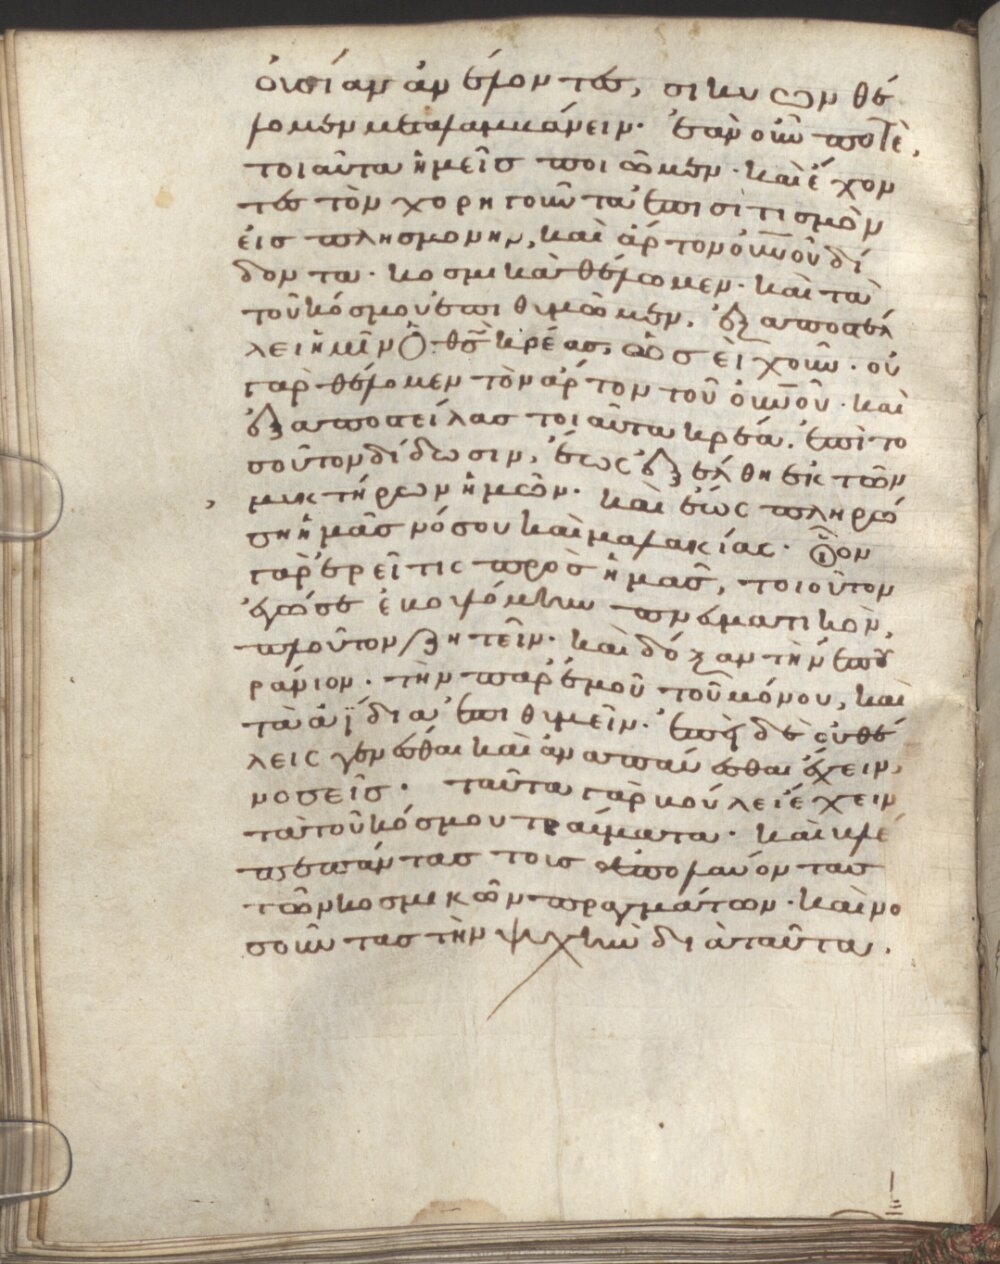 ουσίαν ἀνελόντες, σικύων θέ
λομεν μεταλαμβάνειν· ἐὰν οὖν ποτὲ,
τοιαῦτα ἡμεῖς ποιῶμεν· καὶ ἔχον
τες τὸν χορηγοῦντα ἐπισιτισμὸν
εἰς πλησμονην, καὶ ἄρτον οὐνοῦ δί
δοντα· κοσμικὰ θέλωμεν· καὶ τὰ
τοῦ κόσμου ἐπιθυμῶμεν, ἐξαποστέλ
λει ἡμῖν ὁ θς κρέας, ὡσεὶ χοῦν· οὐ
γὰρ θέλομεν τὸν ἄρτον τοῦ οὐνοῦ· καὶ
ἐξαποστείλας τοιαῦτα κρέα, ἐπὶ το
σοῦτον δίδωσιν, ἕως ἐξέλθη ἐκ τῶν
μυκτήρων ἡμῶν· καὶ ἕως πληρώ
ση ἡμᾶς νόσου καὶ μαλακίας· οἷον
γὰρ ἐρεῖ τις πρὸς ἡμᾶς, τοιοῦτον
πνευματικὸν,
πλοῦτον ζητεῖν· καὶ δόξαν τὴν ἐπου
ράνιον· τὴν παρ' ἐμοῦ τοῦ μόνου, καὶ
τὰ ἀΐδια ἐπιθυμεῖν· ἐπεὶ δὲ οὐ θέ
λεις γενέσθαι καὶ ἀναπαύεσθαι ἔχειν,
νοσεῖς· ταῦτα γὰρ βούλει ἔχειν
τὰ τοῦ κόσμου πράγματα· καὶ βλέ
πε πάντας τοις ἀπολαύοντας
τῶν κοσμικῶν πραγμάτων· καὶ νο
σοῦντας τὴν ψυχὴν διὰ ταῦτα.